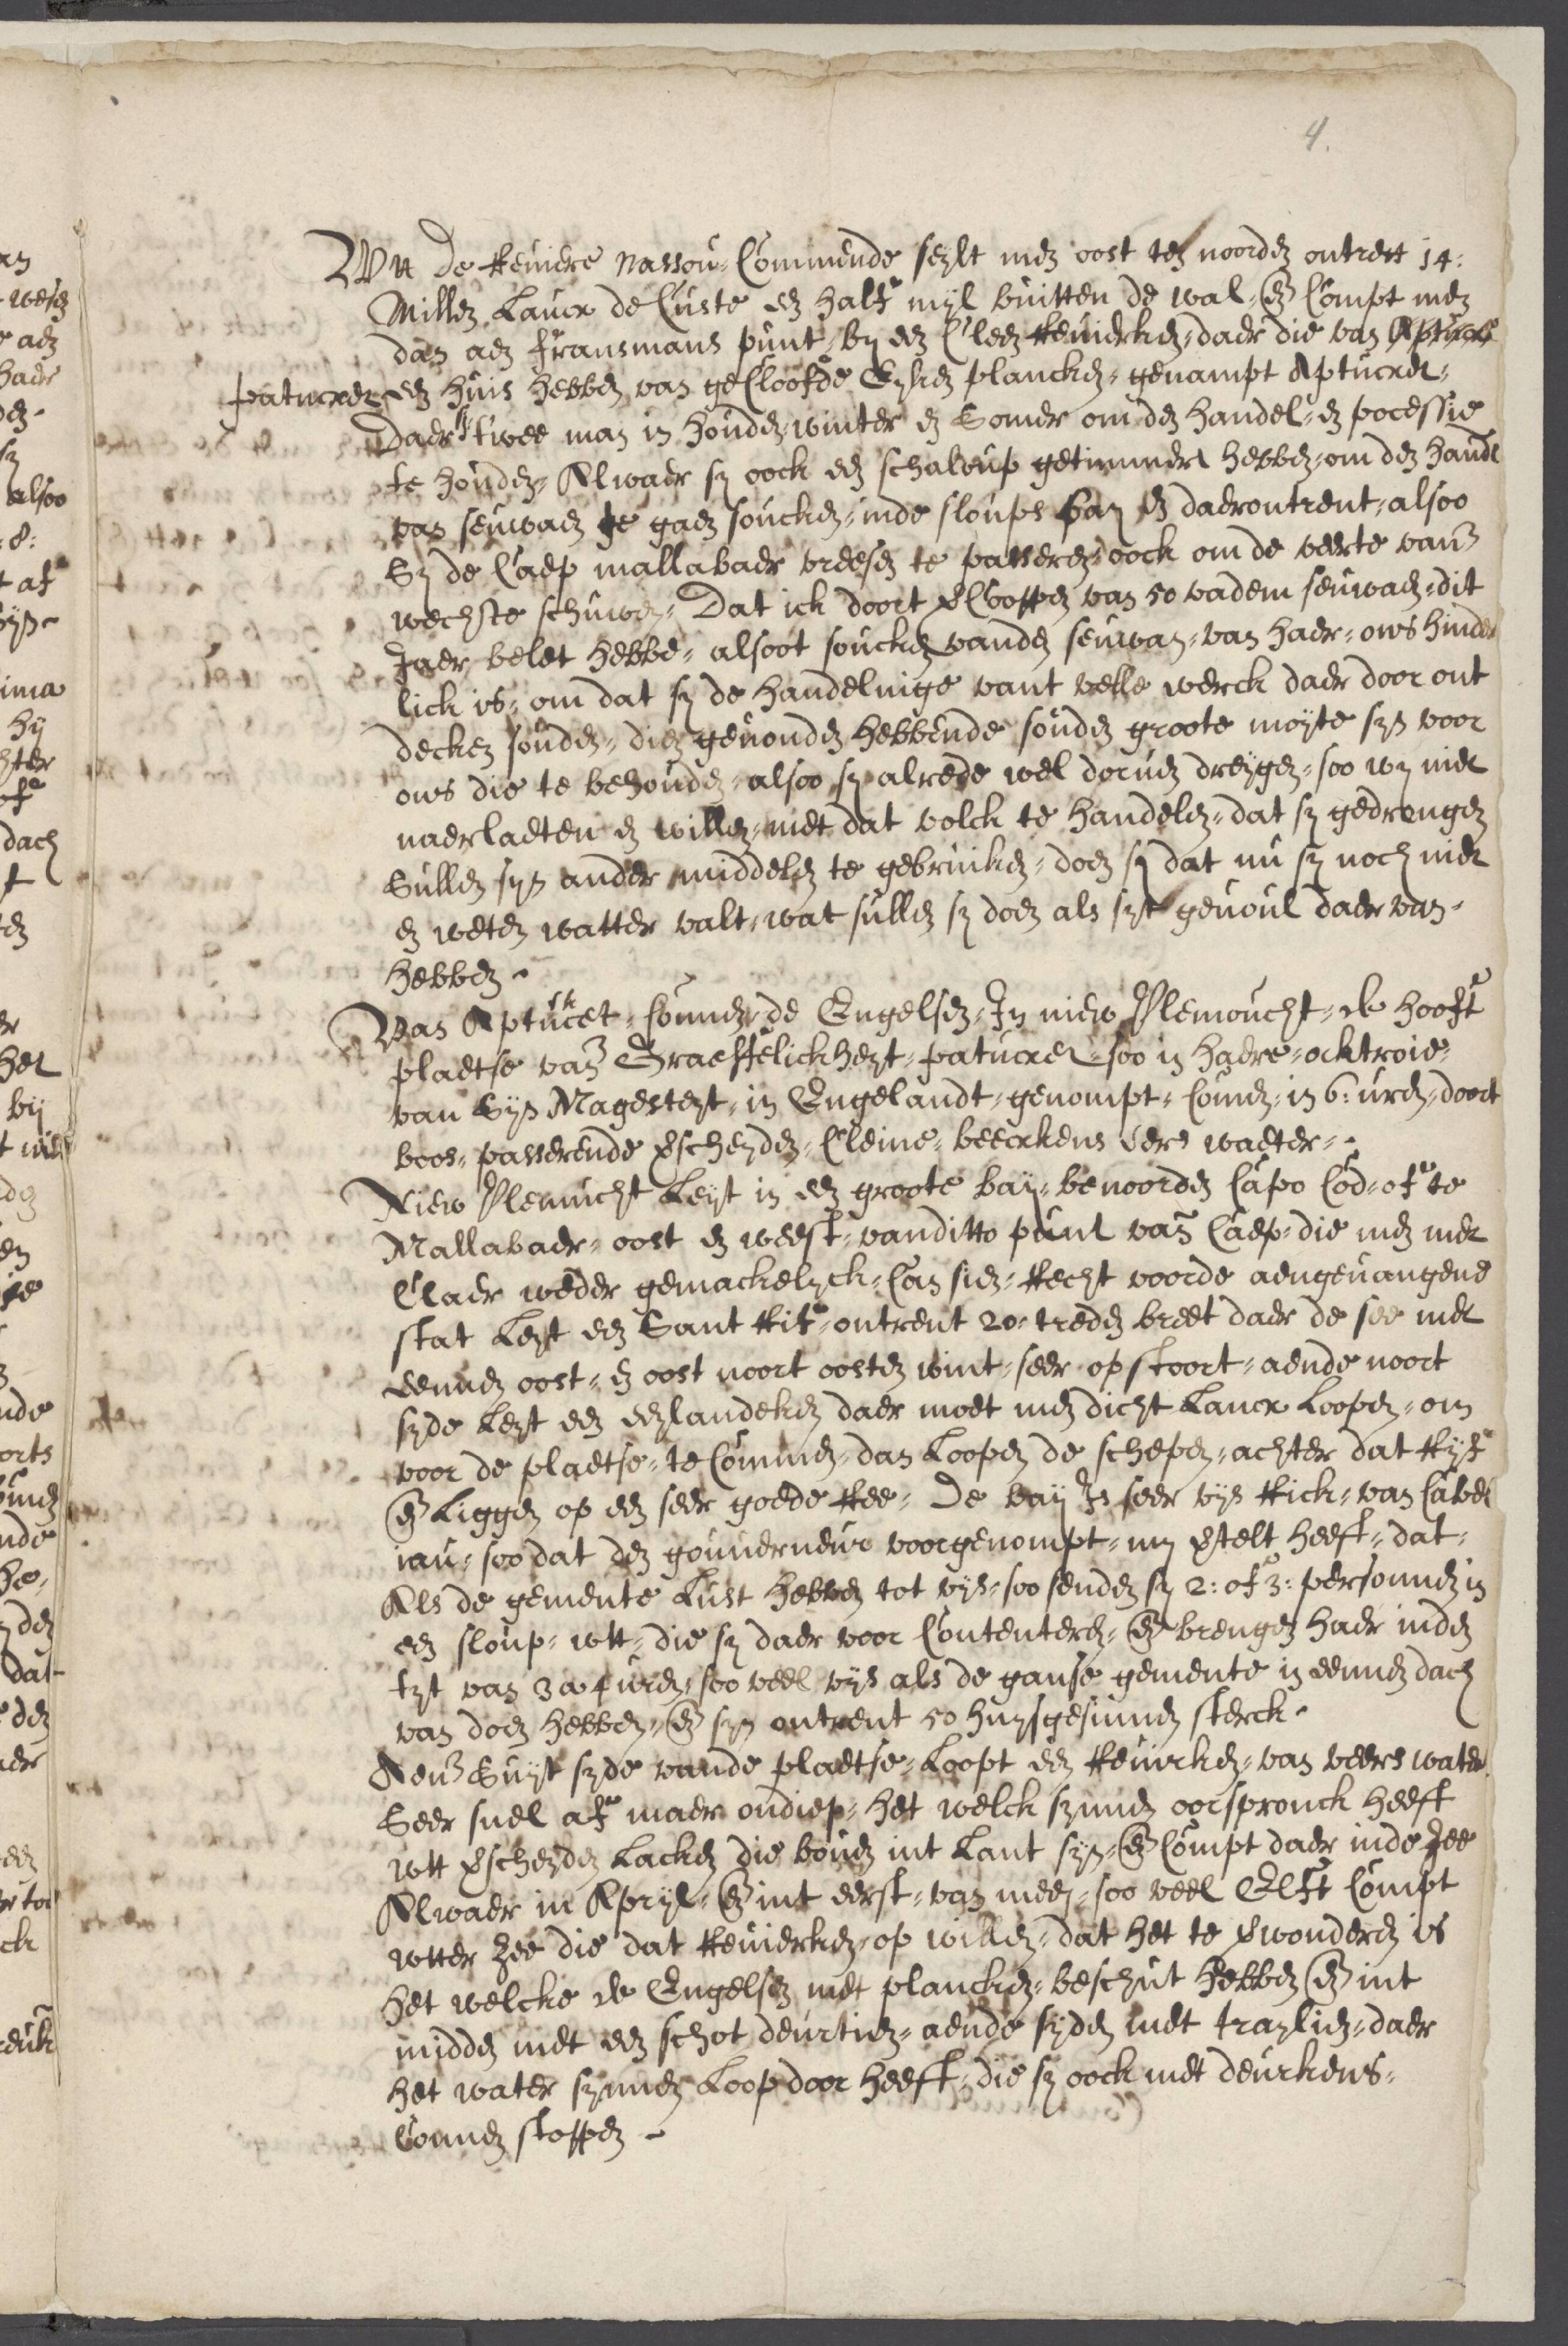 4.
Wtt de Reuiere Nassou Commende seylt men oost ten noorden ontrent 14:
Millen Lancx de Custe een half myl buitten de wal, en Compt men
dan aen fransmans punt, by een Cleen Reuierken, daer die van Aptucxet
patucxet een huis hebben van geCloofde Eyken plancken, genampt Aptucxet,
Daer sy twee man in houden winter en Somer om den handel, en pocessie
te houden, Alwaer sy oock een schaloup getimmert hebben, om den handel
van seuwan te gaen soucken, inde sloups bay en daerontrent, alsoo
Sy de Caep mallabaer vreesen te passeren, oock om de veerte van
wech te schuwen, Dat ick doort vercooppen van 50 vadem seuwan, dit
Jaer belet hebbe, alsoot soucken vanden seuwan, van haer, ons hinder
lick is, om dat sy de handelinge vant velle werck daer door ont
decken souden, dien geuonden hebbende souden groote moyte syn voor
ons die te behouden, alsoo sy alrede wel doruen dreygen, soo wy niet
naerlaeten en willen, met dat volck te handelen, dat sy gedrongen
Sullen syn ander middelen te gebruiken, doen sy dat nu sy noch niet
en weten watter valt, wat sullen sy doen als syt geuoul daer van
hebben
Van Aptucxet, Connen de Engelsen, In niew Plemoucht, de hooft
plaetse van Graeffelickheyt, patucxet, soo in haere, ocktroie,
van Syn Magesteyt, in Engelandt, genompt, Comen, in 6: uren, doort
bos, passerende verscheyden, Cleine, beeckens vers waeter
Niew Plemucht Leyt in een groote bay, benoorden Capo Cod, of te
Mallabaer, oost en weest, vanditto punt van Caep, die men met
Claer weder gemackelyck, Can sien, Recht voorde aengeuangene
stat Leyt een Sant Rif, ontrent 20: treden breet daer de see met
eennen oost, en oost noort oosten wint, seer op stoort, aende noort
syde Leyt een eylandeken daer moet men dicht Lancx Loopen, om
voor de plaetse, te Commen, dan Loopen de schepen, achter dat Ryf
en Liggen op een seer goede Ree, De bay Is seer vys Rick, van Cabel
iau, soo dat den gouuerneur voorgenompt, my vertelt heeft, dat,
Als de gemente Lust hebben tot vys, soo senden sy 2: of 3: personnen in
een sloup, wtt, die sy daer voor Contenteren, en brengen haer inden
tyt van 3 a 4 uren, soo veel vys als de ganse gemente in eennen dach
van doen hebben, en syn ontrent 50 huysgesinnen sterck
Aen Suyt syde vande plaetse, Loopt een Reuierken, van veers water
Seer snel af maer ondiep, het welck synnen oorspronck heeft
wtt verscheyden Lacken die bouen int Lant syn, en Compt daer inde Zee
Alwaer in Apryl, en int eerst, van meey, soo veel Elft Compt
wtter Zee die dat Reuierken, op willen, dat het te verwonderen is
het welcke de Engelsen met plancken, beschut hebben en int
midden met een schot deurtien, aende syden met traylien, daer
het water synnen Loop door heeft, die sy oock met deurkens
Connen stoppen